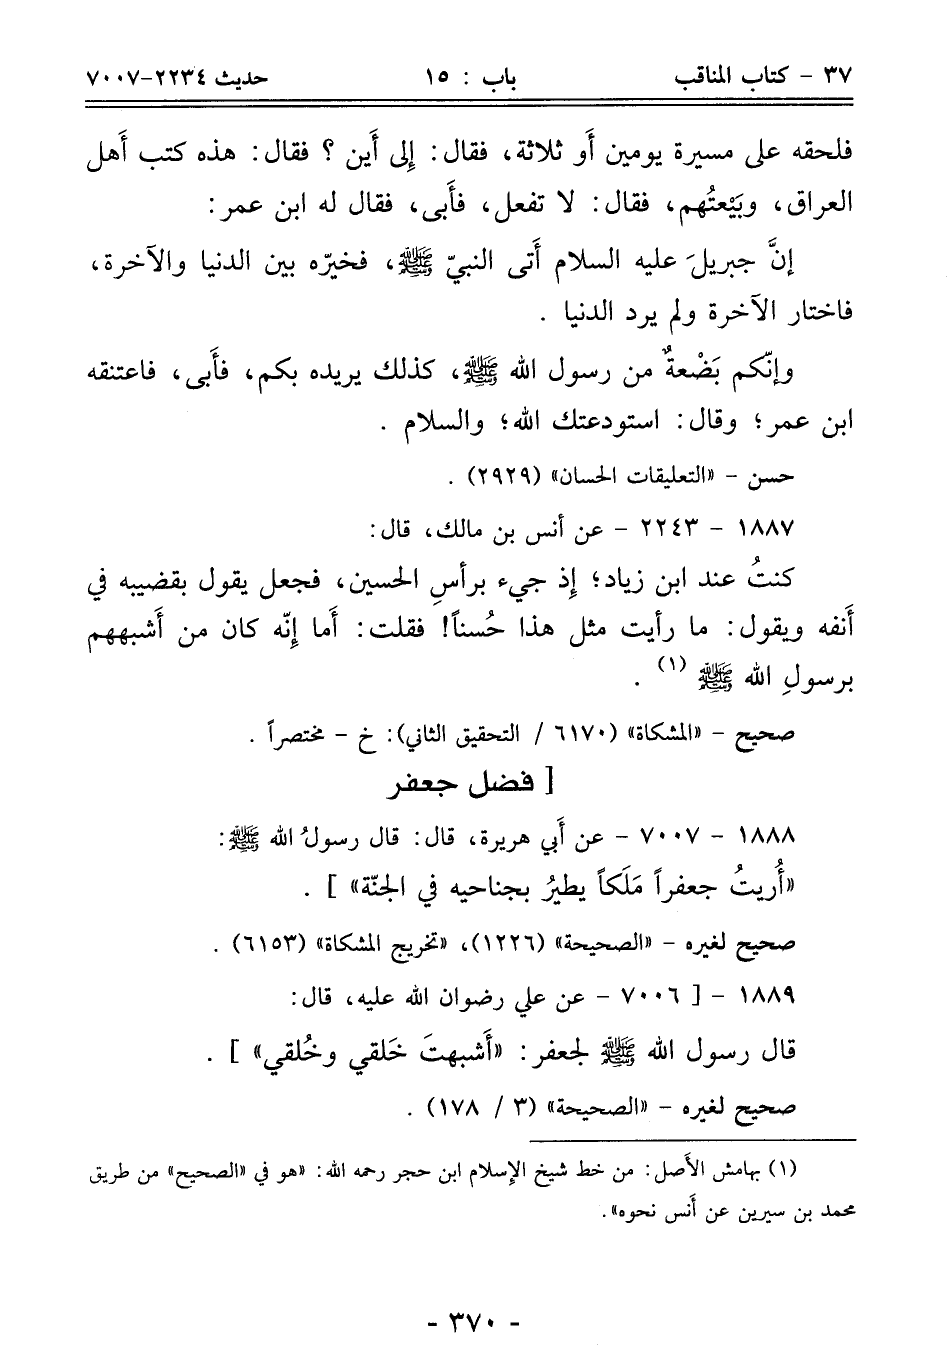 ٣٧ - كتاب المناقب باب : ١٥ حديث ٢٢٣٤-٧٠٠٧
فلحقه على مسيرة يومين أَو ثلاثة، فقال: إِلى أَين ؟ فقال: هذه كتب أَهل
العراق، وبَيْعتُهم، فقال: لا تفعل، فأَبى، فقال له ابن عمر:
إنَّ جبريلَ عليه السلام أَتى النبيّ ﷺ، فخيّره بين الدنيا والآخرة،
فاختار الآخرة ولم يرد الدنيا .
وإنّكم بَضْعةٌ من رسول الله ﷺ، كذلك يريده بكم، فأَبى، فاعتنقه
ابن عمر؛ وقال: استودعتك الله؛ والسلام .
حسن - «التعليقات الحسان» (٢٩٢٩) .
١٨٨٧ - ٢٢٤٣ - عن أنس بن مالك، قال:
كنتُ عند ابن زياد؛ إِذ جيء برأسِ الحسين، فجعل يقول بقضيبه في
أَنفه ويقول: ما رأيت مثل هذا حُسناً! فقلت: أَما إِنّه كان من أَشبههم
برسولِ الله ﷺ (١) .
صحيح - «المشكاة» (٦١٧٠ / التحقيق الثاني): خ - مختصراً .
[ فضل جعفر
١٨٨٨ - ٧٠٠٧ - عن أَبي هريرة، قال: قال رسولُ الله ﷺ:
«أُريتُ جعفراً مَلَكاً يطيرُ بجناحيه في الجنّة» ] .
صحيح لغيره - «الصحيحة» (١٢٢٦)، «تخريج المشكاة» (٦١٥٣) .
١٨٨٩ - [ ٧٠٠٦ - عن علي رضوان الله عليه، قال:
قال رسول الله ﷺ لجعفر: «أَشبهتَ خَلقي وخُلقي» ] .
صحيح لغيره - «الصحيحة» (٣ / ١٧٨) .
(١) بهامش الأَصل: من خط شيخ الإسلام ابن حجر رحمه الله: «هو في «الصحيح» من طريق
محمد بن سيرين عن أَنس نحوه».
- ٣٧٠ -